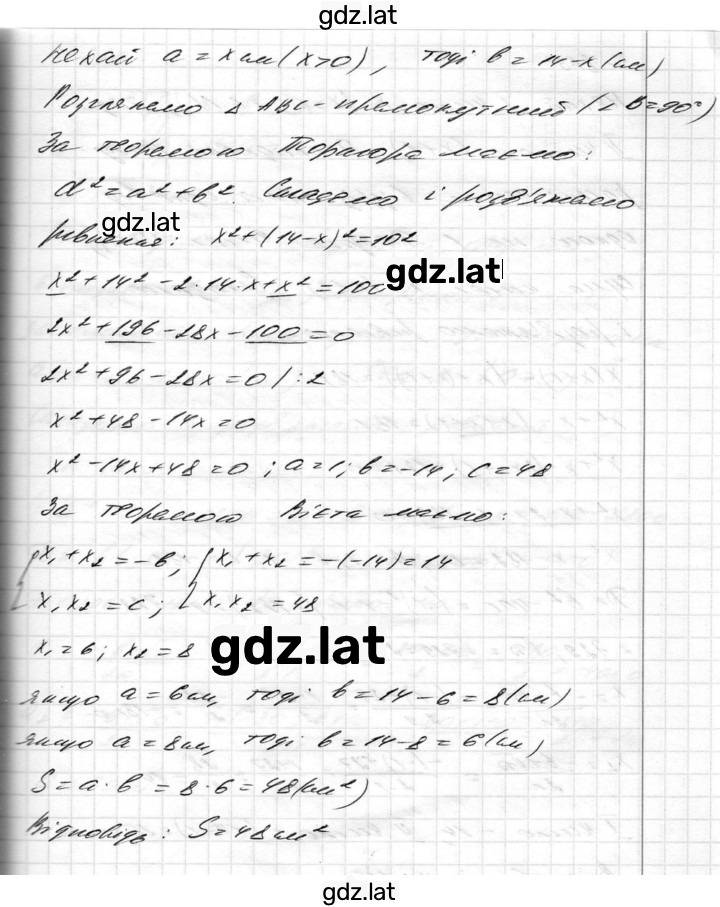 gdz.lat
Нехай a = x см (x>0), тоді b = 14-x (см)
Розглянемо Δ ABC - прямокутний (∠B=90°)
За теоремою Піфагора маємо:
d² = a² + b². Складемо і розв'яжемо
gdz.lat
рівняння: x² + (14-x)² = 10²
gdz.lat
x² + 14² - 2·14·x + x² = 100
2x² + 196 - 28x - 100 = 0
2x² + 96 - 28x = 0 /:2
x² + 48 - 14x = 0
x² - 14x + 48 = 0; a=1; b=-14; c=48
За теоремою Вієта маємо:
x₁ + x₂ = -b; x₁ + x₂ = -(-14) = 14
x₁x₂ = c; x₁x₂ = 48
x₁ = 6; x₂ = 8
gdz.lat
якщо a = 6 см, тоді b = 14 - 6 = 8 (см)
якщо a = 8 см, тоді b = 14 - 8 = 6 (см)
S = a·b = 8·6 = 48 (см²)
Відповідь: S = 48 см²
gdz.lat